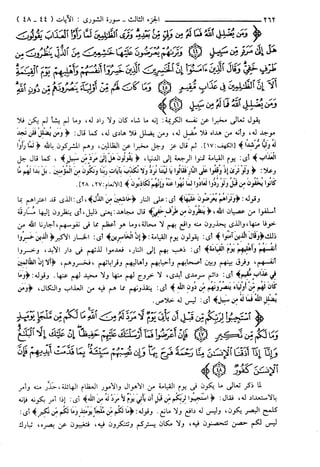 ٢٦٢ الجزء الثالث - سورة الشورى: الآيات (٤٤ - ٤٨)
وَمَن يُضْلِلِ اللَّهُ فَمَا لَهُ مِن وَلِيٍّ مِّن بَعْدِهِ وَتَرَى الظَّالِمِينَ لَمَّا رَأَوُا الْعَذَابَ يَقُولُونَ
هَلْ إِلَى مَرَدٍّ مِّن سَبِيلٍ (٤٤) وَتَرَاهُمْ يُعْرَضُونَ عَلَيْهَا خَاشِعِينَ مِنَ الذُّلِّ يَنظُرُونَ مِن
طَرْفٍ خَفِيٍّ وَقَالَ الَّذِينَ آمَنُوا إِنَّ الْخَاسِرِينَ الَّذِينَ خَسِرُوا أَنفُسَهُمْ وَأَهْلِيهِمْ يَوْمَ الْقِيَامَةِ
أَلَا إِنَّ الظَّالِمِينَ فِي عَذَابٍ مُّقِيمٍ (٤٥) وَمَا كَانَ لَهُم مِّنْ أَوْلِيَاءَ يَنصُرُونَهُم مِّن دُونِ اللَّهِ
وَمَن يُضْلِلِ اللَّهُ فَمَا لَهُ مِن سَبِيلٍ (٤٦)
يقول تعالى مخبرا عن نفسه الكريمة: إنه ما شاء كان ولا راد له، وما لم يشأ لم يكن فلا
موجد له، وأنه من هداه فلا مضل له، ومن يضلل فلا هادي له، كما قال: ﴿وَمَن يُضْلِلْ فَلَن تَجِدَ
لَهُ وَلِيًّا مُّرْشِدًا﴾ [الكهف: ١٧]. ثم قال عز وجل مخبرا عن الظالمين، وهم المشركون بالله ﴿لَمَّا رَأَوُا
الْعَذَابَ﴾ أي: يوم القيامة تمنوا الرجعة إلى الدنيا، ﴿يَقُولُونَ هَلْ إِلَى مَرَدٍّ مِّن سَبِيلٍ﴾، كما قال جل
وعلا: ﴿وَلَوْ تَرَى إِذْ وُقِفُوا عَلَى النَّارِ فَقَالُوا يَا لَيْتَنَا نُرَدُّ وَلَا نُكَذِّبَ بِآيَاتِ رَبِّنَا وَنَكُونَ مِنَ الْمُؤْمِنِينَ. بَلْ بَدَا لَهُم مَّا
كَانُوا يُخْفُونَ مِن قَبْلُ وَلَوْ رُدُّوا لَعَادُوا لِمَا نُهُوا عَنْهُ وَإِنَّهُمْ لَكَاذِبُونَ﴾ [الأنعام: ٢٧، ٢٨].
وقوله: ﴿وَتَرَاهُمْ يُعْرَضُونَ عَلَيْهَا﴾ أي: على النار ﴿خَاشِعِينَ مِنَ الذُّلِّ﴾، أي: الذي قد اعتراهم بما
أسلفوا من عصيان الله، ﴿يَنظُرُونَ مِن طَرْفٍ خَفِيٍّ﴾ قال مجاهد: يعني ذليل، أي ينظرون إليها مُسَارقة
خوفا منها، والذي يحذرون منه واقع بهم لا محالة، وما هو أعظم مما في نفوسهم، أجارنا الله من
ذلك ﴿وَقَالَ الَّذِينَ آمَنُوا﴾ أي: يقولون يوم القيامة: ﴿إِنَّ الْخَاسِرِينَ﴾ أي: الخسار الأكبر ﴿الَّذِينَ خَسِرُوا
أَنفُسَهُمْ وَأَهْلِيهِمْ يَوْمَ الْقِيَامَةِ﴾ أي: ذهب بهم إلى النار، فعدموا لذتهم في دار الأبد، وخسروا
أنفسهم، وفرق بينهم وبين أصحابهم وأحبابهم وأهاليهم وقراباتهم، فخسروهم، ﴿أَلَا إِنَّ الظَّالِمِينَ
فِي عَذَابٍ مُّقِيمٍ﴾ أي: دائم سرمدي أبدي، لا خروج لهم منها ولا محيد لهم عنها. وقوله: ﴿وَمَا
كَانَ لَهُم مِّنْ أَوْلِيَاءَ يَنصُرُونَهُم مِّن دُونِ اللَّهِ﴾ أي: ينقذونهم مما هم فيه من العذاب والنكال، ﴿وَمَن
يُضْلِلِ اللَّهُ فَمَا لَهُ مِن سَبِيلٍ﴾ أي: ليس له خلاص.
اسْتَجِيبُوا لِرَبِّكُم مِّن قَبْلِ أَن يَأْتِيَ يَوْمٌ لَّا مَرَدَّ لَهُ مِنَ اللَّهِ مَا لَكُم مِّن مَّلْجَإٍ يَوْمَئِذٍ
وَمَا لَكُم مِّن نَّكِيرٍ (٤٧) فَإِنْ أَعْرَضُوا فَمَا أَرْسَلْنَاكَ عَلَيْهِمْ حَفِيظًا إِنْ عَلَيْكَ إِلَّا الْبَلَاغُ
وَإِنَّا إِذَا أَذَقْنَا الْإِنسَانَ مِنَّا رَحْمَةً فَرِحَ بِهَا وَإِن تُصِبْهُمْ سَيِّئَةٌ بِمَا قَدَّمَتْ أَيْدِيهِمْ فَإِنَّ
الْإِنسَانَ كَفُورٌ (٤٨)
لما ذكر تعالى ما يكون في يوم القيامة من الأهوال والأمور العظام الهائلة، حَذَّر منه وأمر
بالاستعداد له، فقال: ﴿اسْتَجِيبُوا لِرَبِّكُم مِّن قَبْلِ أَن يَأْتِيَ يَوْمٌ لَّا مَرَدَّ لَهُ مِنَ اللَّهِ﴾ أي: إذا أمر بكونه فإنه
كلمح البصر يكون، وليس له دافع ولا مانع. وقوله: ﴿مَا لَكُم مِّن مَّلْجَإٍ يَوْمَئِذٍ وَمَا لَكُم مِّن نَّكِيرٍ﴾ أي:
ليس لكم حصن تتحصنون فيه، ولا مكان يستركم وتتنكرون فيه، فتغيبون عن بصره، تبارك